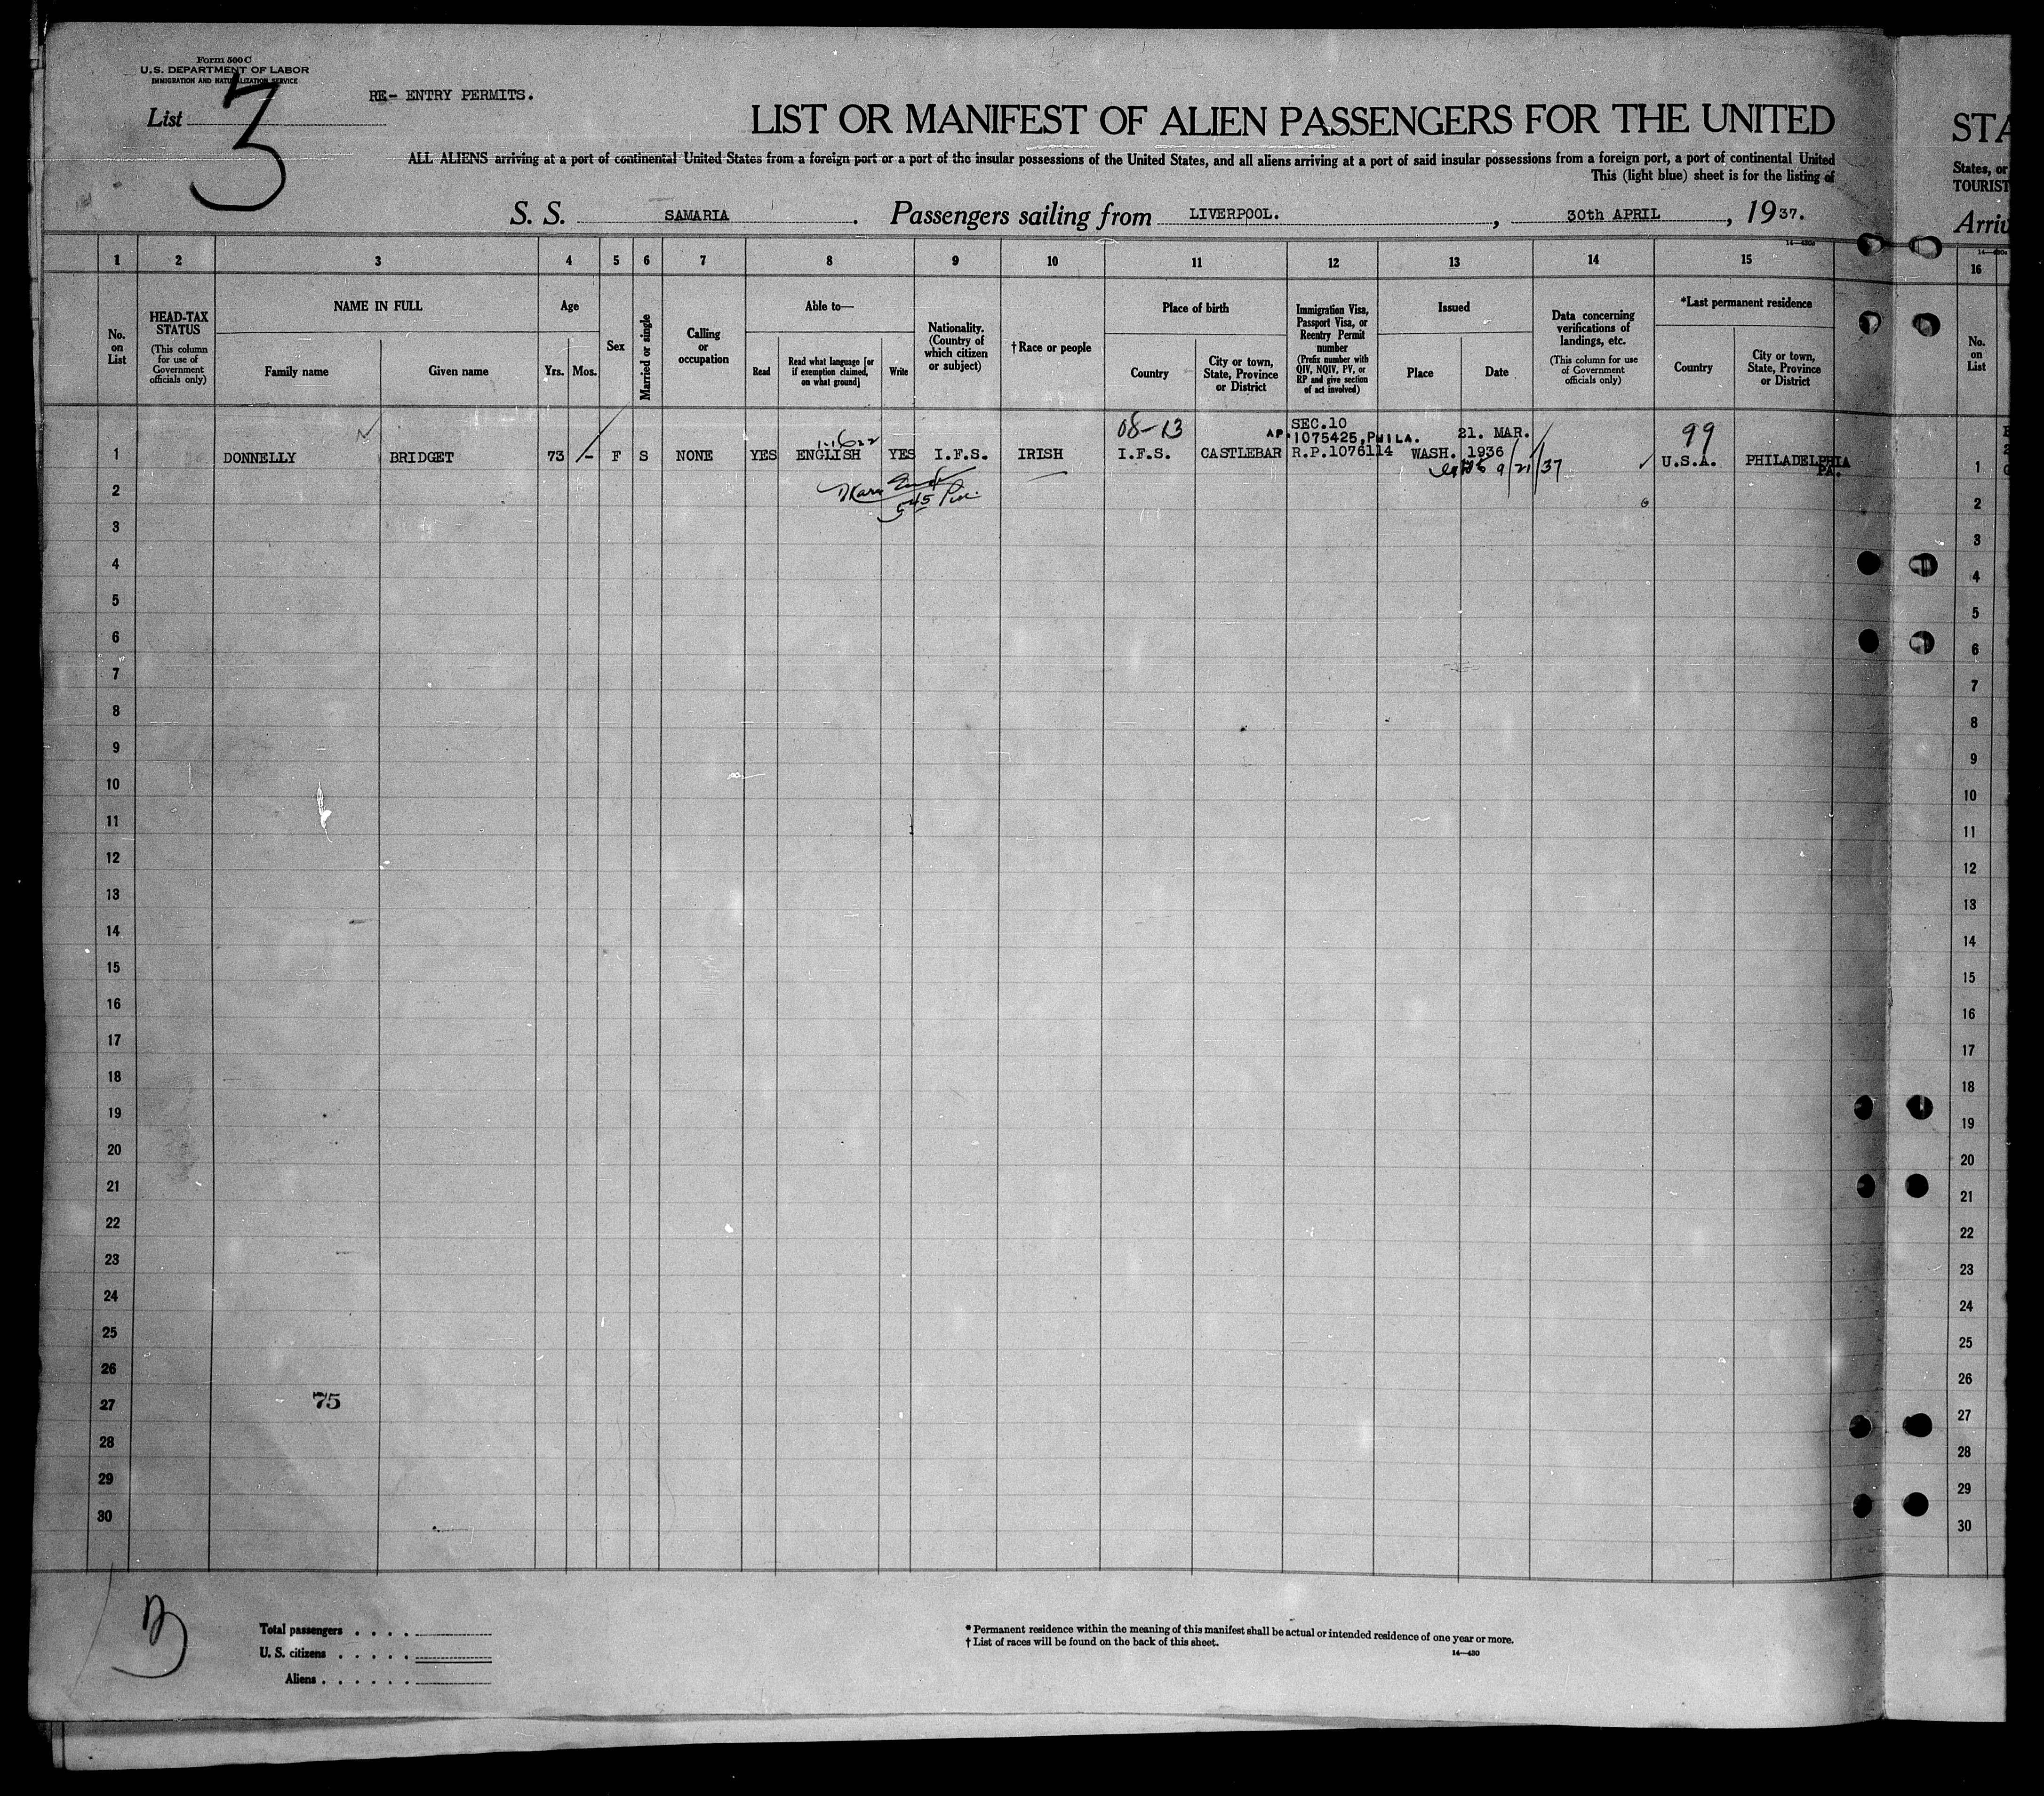 Form 500 C
U.S. DEPARTMENT OF LABOR
IMMIGRATION AND NATURALIZATION SERVICE
List 3
RE- ENTRY PERMITS.
LIST OR MANIFEST OF ALIEN PASSENGERS FOR THE UNITED
ALL ALIENS arriving at a port of continental United States from a foreign port or a port of the insular possessions of the United States, and all aliens arriving at a port of said insular possessions from a foreign port, a port of continental United
This (light blue) sheet is for the listing of
S. S. SAMARIA. Passengers sailing from LIVERPOOL., 30th APRIL, 1937.
STA
States, or
TOURIST
Arriv
14—430a
1 2 3 4 5 6 7 8 9 10 11 12 13 14 15
16
No. on List
HEAD-TAX STATUS
(This column for use of Government officials only)
NAME IN FULL
Family name
Given name
Age
Yrs.
Mos.
Sex
Married or single
Calling or occupation
Able to—
Read
Read what language [or if exemption claimed, on what ground]
Write
Nationality. (Country of which citizen or subject)
†Race or people
Place of birth
Country
City or town, State, Province or District
Immigration Visa, Passport Visa, or Reentry Permit number
(Prefix number with QIV, NQIV, PV, or RP and give section of act involved)
Issued
Place
Date
Data concerning verifications of landings, etc.
(This column for use of Government officials only)
*Last permanent residence
Country
City or town, State, Province or District
No. on List
08-13
SEC.10
AP 1075425, PHILA.
21. MAR.
99
1 DONNELLY BRIDGET 73 - F S NONE YES ENGLISH YES I.F.S. IRISH I.F.S. CASTLEBAR R.P.1076114 WASH. 1936 U.S.A. PHILADELPHIA
PA.
9/21/37
545
1
2
2
3
3
4
4
5
5
6
6
7
7
8
8
9
9
10
10
11
11
12
12
13
13
14
14
15
15
16
16
17
17
18
18
19
19
20
20
21
21
22
22
23
23
24
24
25
25
26
26
75
27
27
28
28
29
29
30
30
Total passengers . . . .
U. S. citizens . . . . .
Aliens . . . . . .
* Permanent residence within the meaning of this manifest shall be actual or intended residence of one year or more.
† List of races will be found on the back of this sheet.
14—430